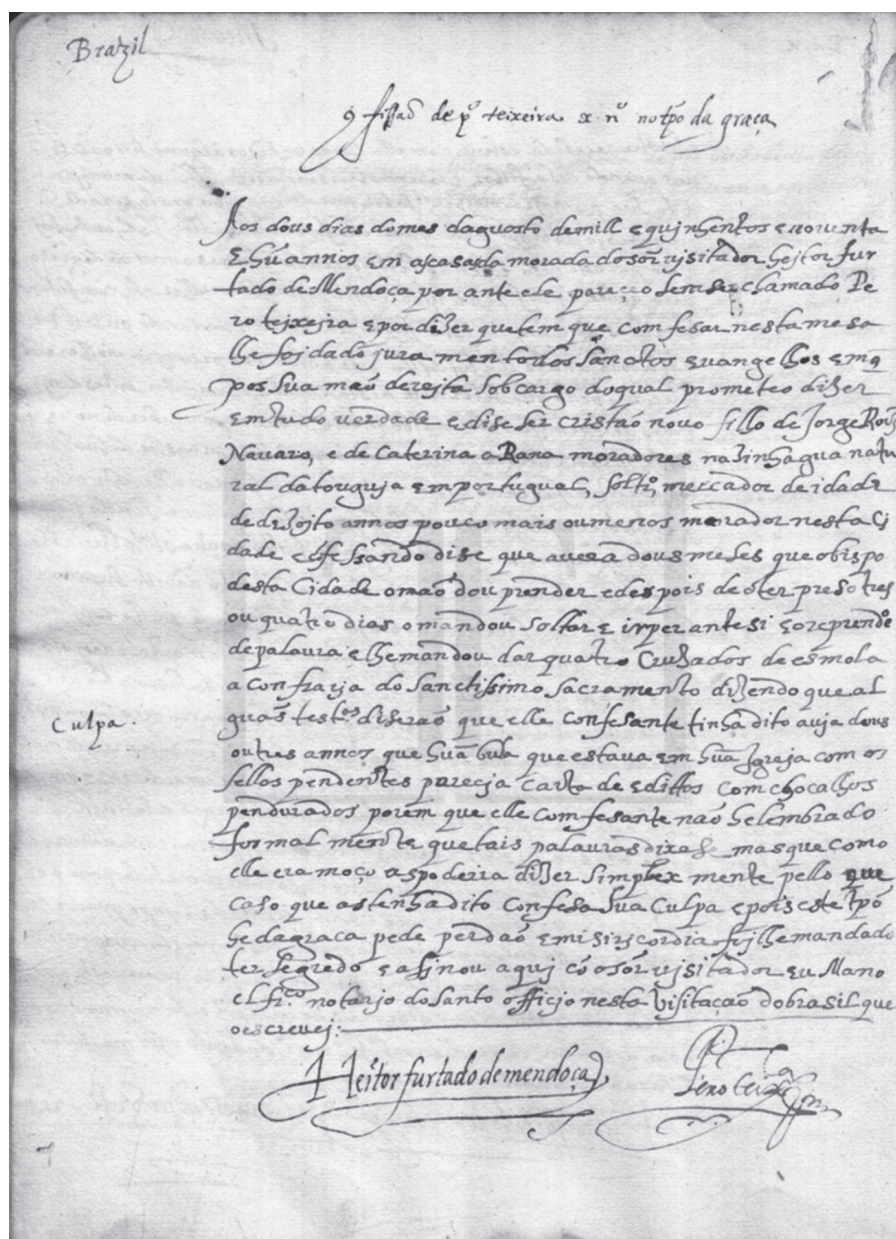 Brazil
Cõfissão de pº teixeira x. nº no tpõ da graça
Aos dous dias do mes dagosto de mill e quinhentos e noventa
e hũ annos em as casas da morada do sõr visitador heitor fur
tado de Mendoça por ante ele pareçeo sem ser chamado Pe
ro teixeira e por dizer que tem que comfesar nesta mesa
lhe foi dado juramento dos Sanctos evangelhos em q
pos sua mão dereita sob cargo do qual prometeo dizer
em tudo verdade e dise ser cristão novo fillo de Jorge Roiz
Navaro, e de Caterina moradores na natu
ral da touguia em portugual, soltrº, mercador de idade
de dezoito annos pouco mais ou menos morador nesta Ci
dade e cõfessando dise que avera dous meses que o bispo
desta Cidade o mãdou prender e despois de o ter preso tres
ou quatro dias o mandou soltar e ir perante si e o reprendeo
de palavra e lhe mandou dar quatro Cruzados de esmola
a confraria do Sanctissimo Sacramento dizendo que al
guãs testas diserão que elle confesante tinha dito avia dous
Culpa.
ou tres annos que huã bulla que estava em huã Igreja com os
sellos pendentes pareçia carta de edittos com chocalhos
pendurados porem que elle comfesante não he lembrado
formalmente que tais palavras dixese mas que como
elle era moço as poderia dizer simplexmente pello que
caso que as tenha dito Confesa Sua Culpa e pois este tpõ
he da graça pede perdão e misiricordia foi lhe mandado
ter segredo e asinou aqui cõ o sõr visitador eu Mano
el frco notario do santo officio nesta visitação do brasil que
o escrevei:
Heitor furtado de mendoça
Pero teixra